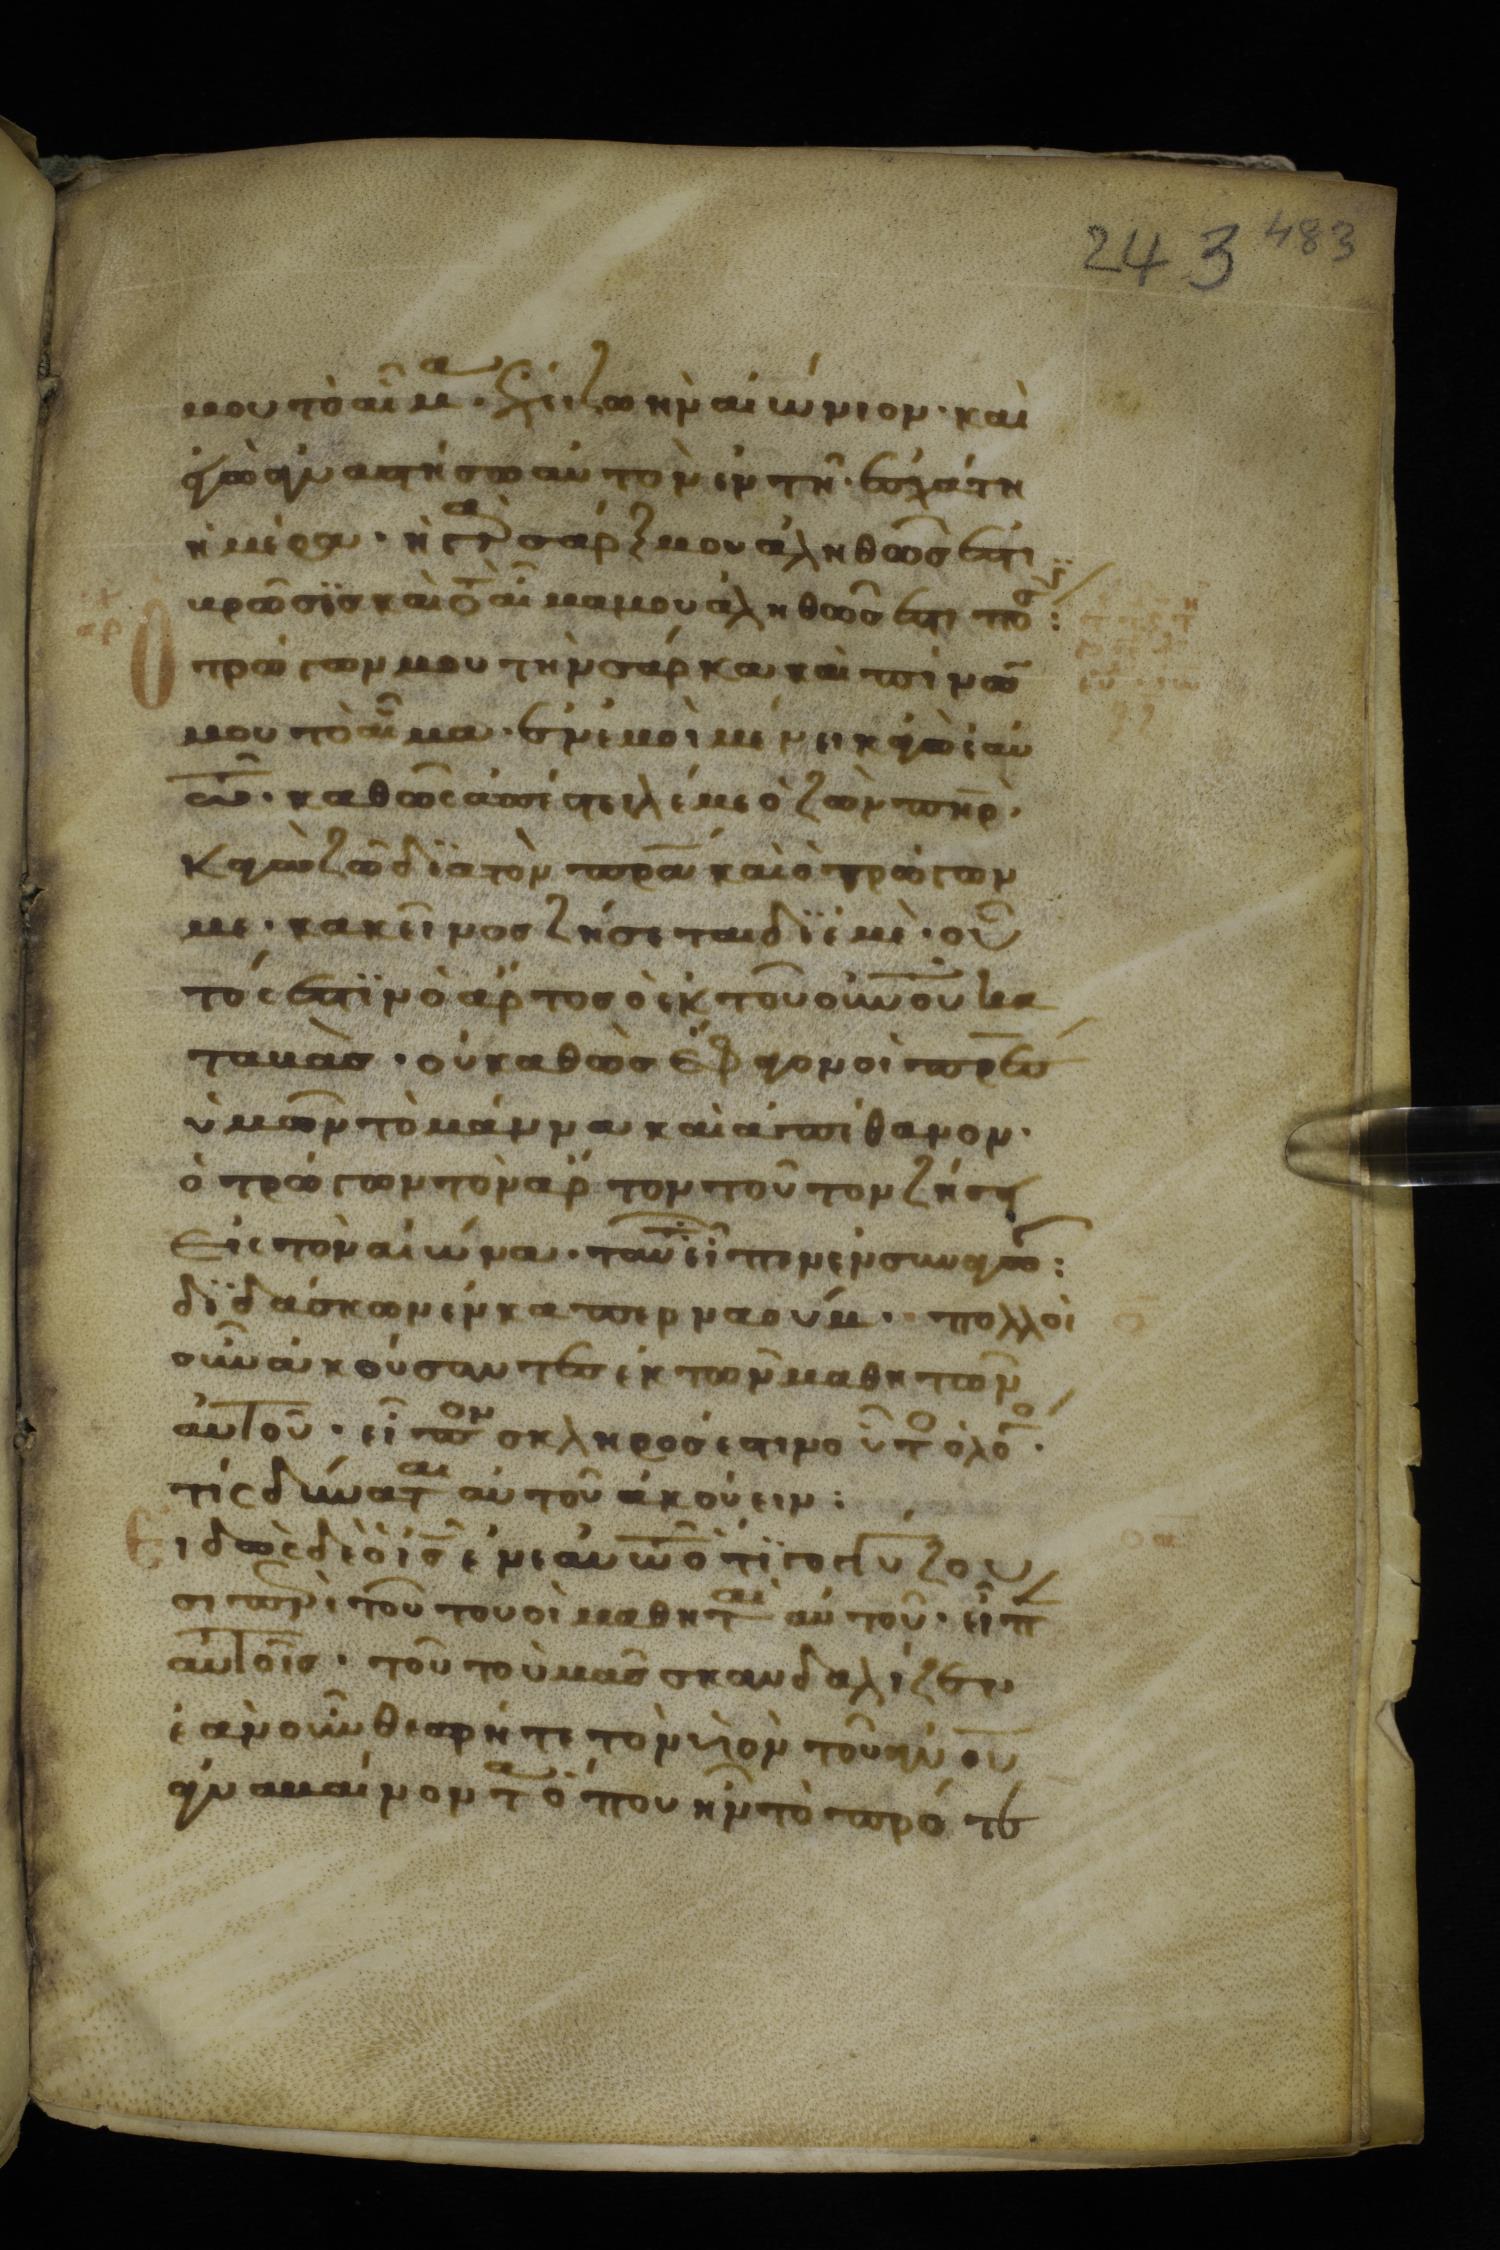 243 483
μου τὸ αἷμα· ἔχει ζωὴν αἰώνιον· καὶ
ἐγὼ ἀναστήσω αὐτὸν ἐν τῆ ἐσχάτη
ἡμέρα· ἡ γὰρ σάρξ μου ἀληθῶς ἐστι
βρῶσϊς καὶ τὸ αἷμα μου ἀληθῶς ἐστι πόσϊς:
Ὁ τρώγων μου τὴν σάρκα καὶ πίνων
μου τὸ αἷμα· ἐν ἐμοὶ μένει κἀγὼ ἐν αὐ
τῶ· καθὼς ἀπέστειλέ με ὁ ζῶν πηρ·
κἀγὼ ζῶ δϊὰ τὸν πρα καὶ ὁ τρώγων
με· κακεῖνος ζήσεται δϊ ἐμέ· οὗ
τός ἐστϊν ὁ ἄρτος ὁ ἐκ τοῦ οὐνοῦ κα
ταβάς· οὐ καθὼς ἔφαγον οἱ πρες
ὑμῶν τὸ μάννα καὶ ἀπέθανον·
ὁ τρώγων τὸν ἄρτον τοῦτον ζήσει
εἰς τὸν αἰῶνα· ταῦτα εἶπεν ἐν συναγωγῆ:
δϊδάσκων ἐν καπερναούμ· πολλοὶ
οὖν ἀκούσαντες ἐκ τῶν μαθητῶν
αὐτοῦ· εἶπον σκληρός ἐστιν οὗτος ὁ λόγος·
τίς δύναται αὐτοῦ ἀκούειν:
Εἰδὼς δὲ ὁ ις ἐν ἑαυτῶ ὅτϊ γογγύζου
σι περὶ τούτου οἱ μαθηταὶ αὐτοῦ· εἶπεν
αὐτοῖς· τοῦτο ὑμᾶς σκανδαλίζει·
ἐὰν οὖν θεωρῆτε τὸν υἱὸν τοῦ ανου
ἀναβαίνοντα ὅπου ἦν τὸ πρότε